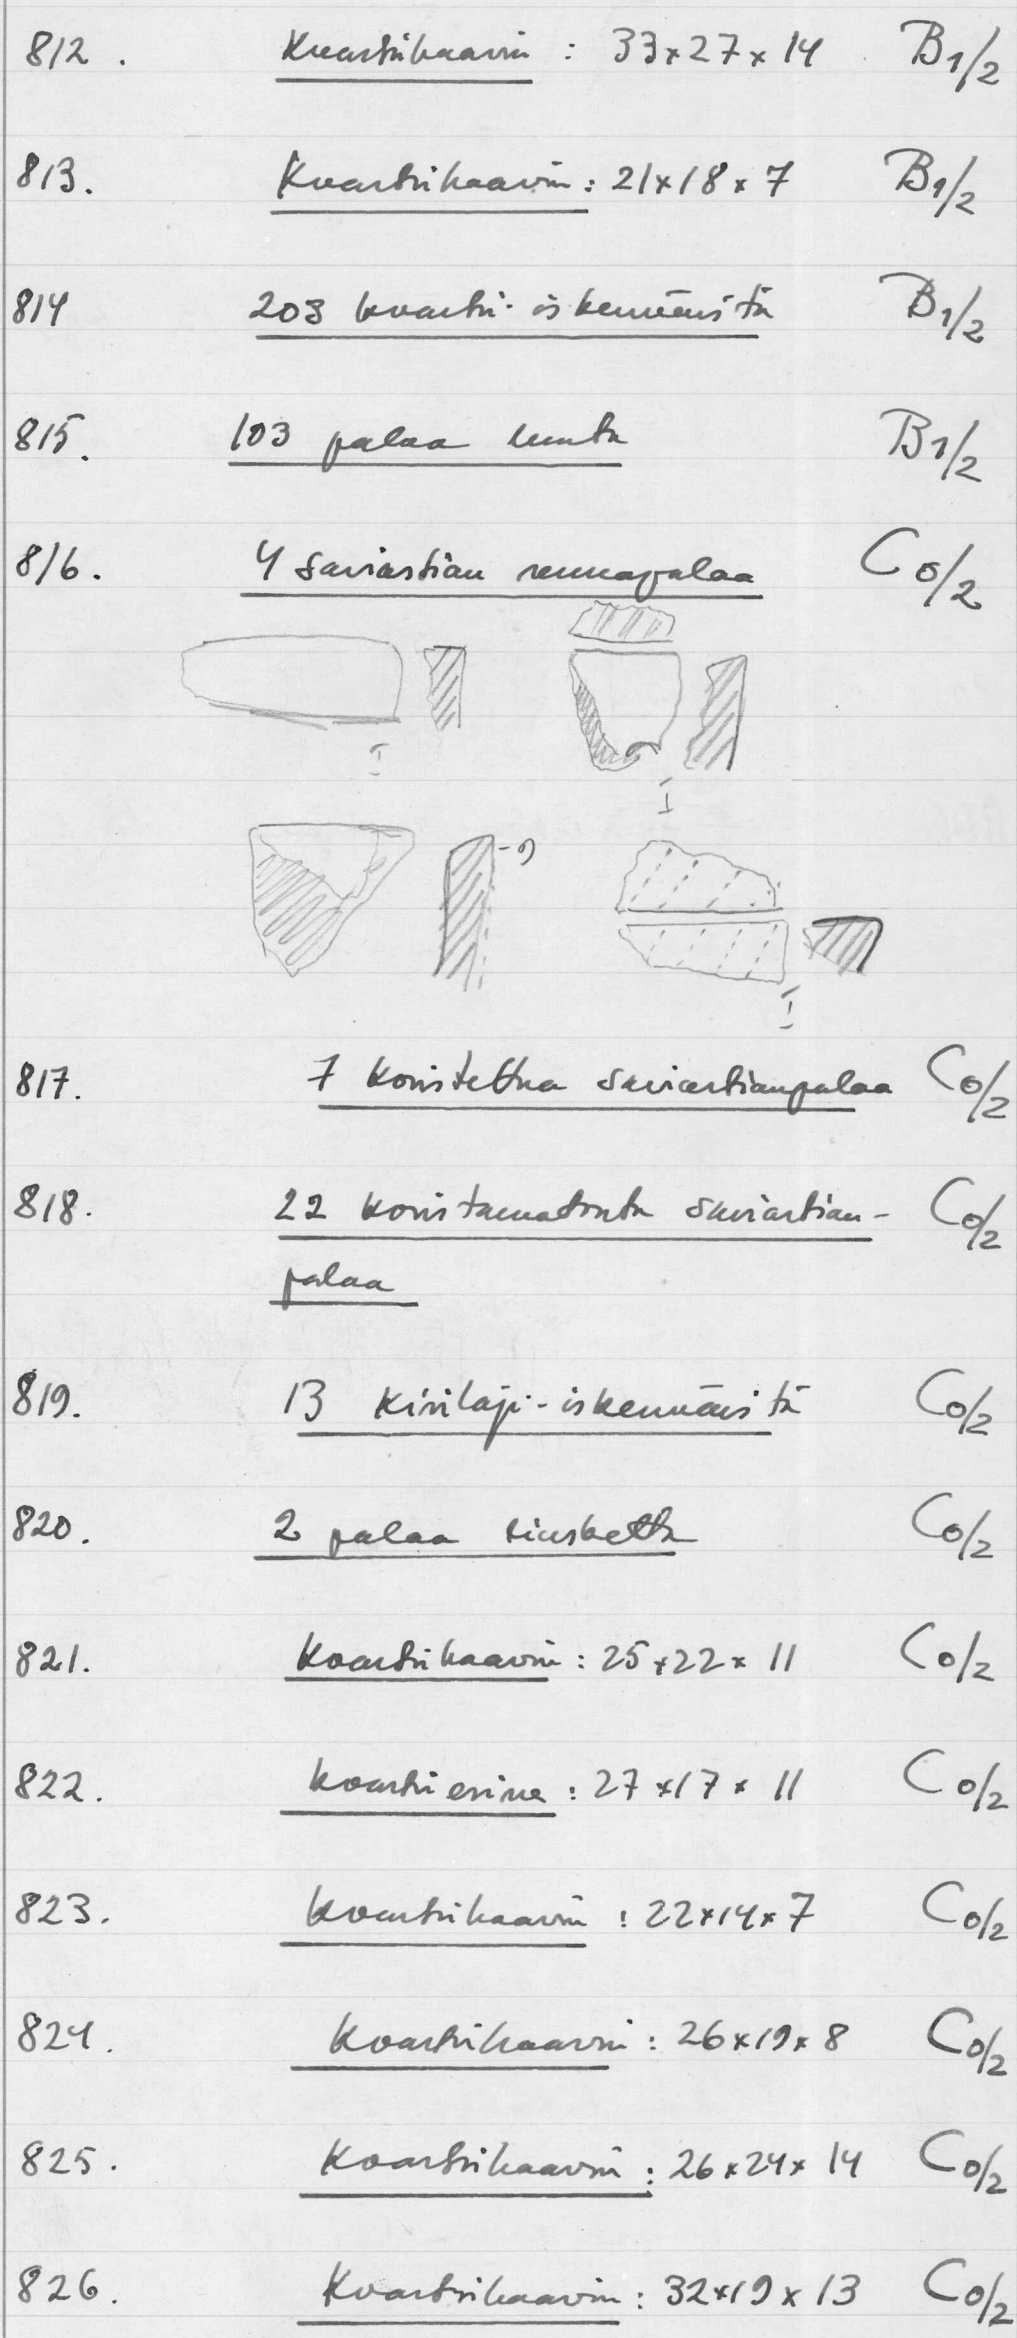 812. Kvartsikaavin : 33×27×14 B1/2
813. Kvartsikaavin : 21×18×7 B1/2
814 203 kvartsi-iskennäistä B1/2
815. 103 palaa luuta B1/2
816. 4 saviastian reunapalaa C0/2
817. 7 koristettua saviastianpalaa C0/2
818. 22 koristamatonta saviastian-
palaa C0/2
819. 13 kivilaji-iskennäistä C0/2
820. 2 palaa liusketta C0/2
821. Kvartsikaavin : 25×22×11 C0/2
822. Kvartsiesine : 27×17×11 C0/2
823. Kvartsikaavin : 22×14×7 C0/2
824. Kvartsikaavin : 26×19×8 C0/2
825. Kvartsikaavin : 26×24×14 C0/2
826. Kvartsikaavin : 32×19×13 C0/2